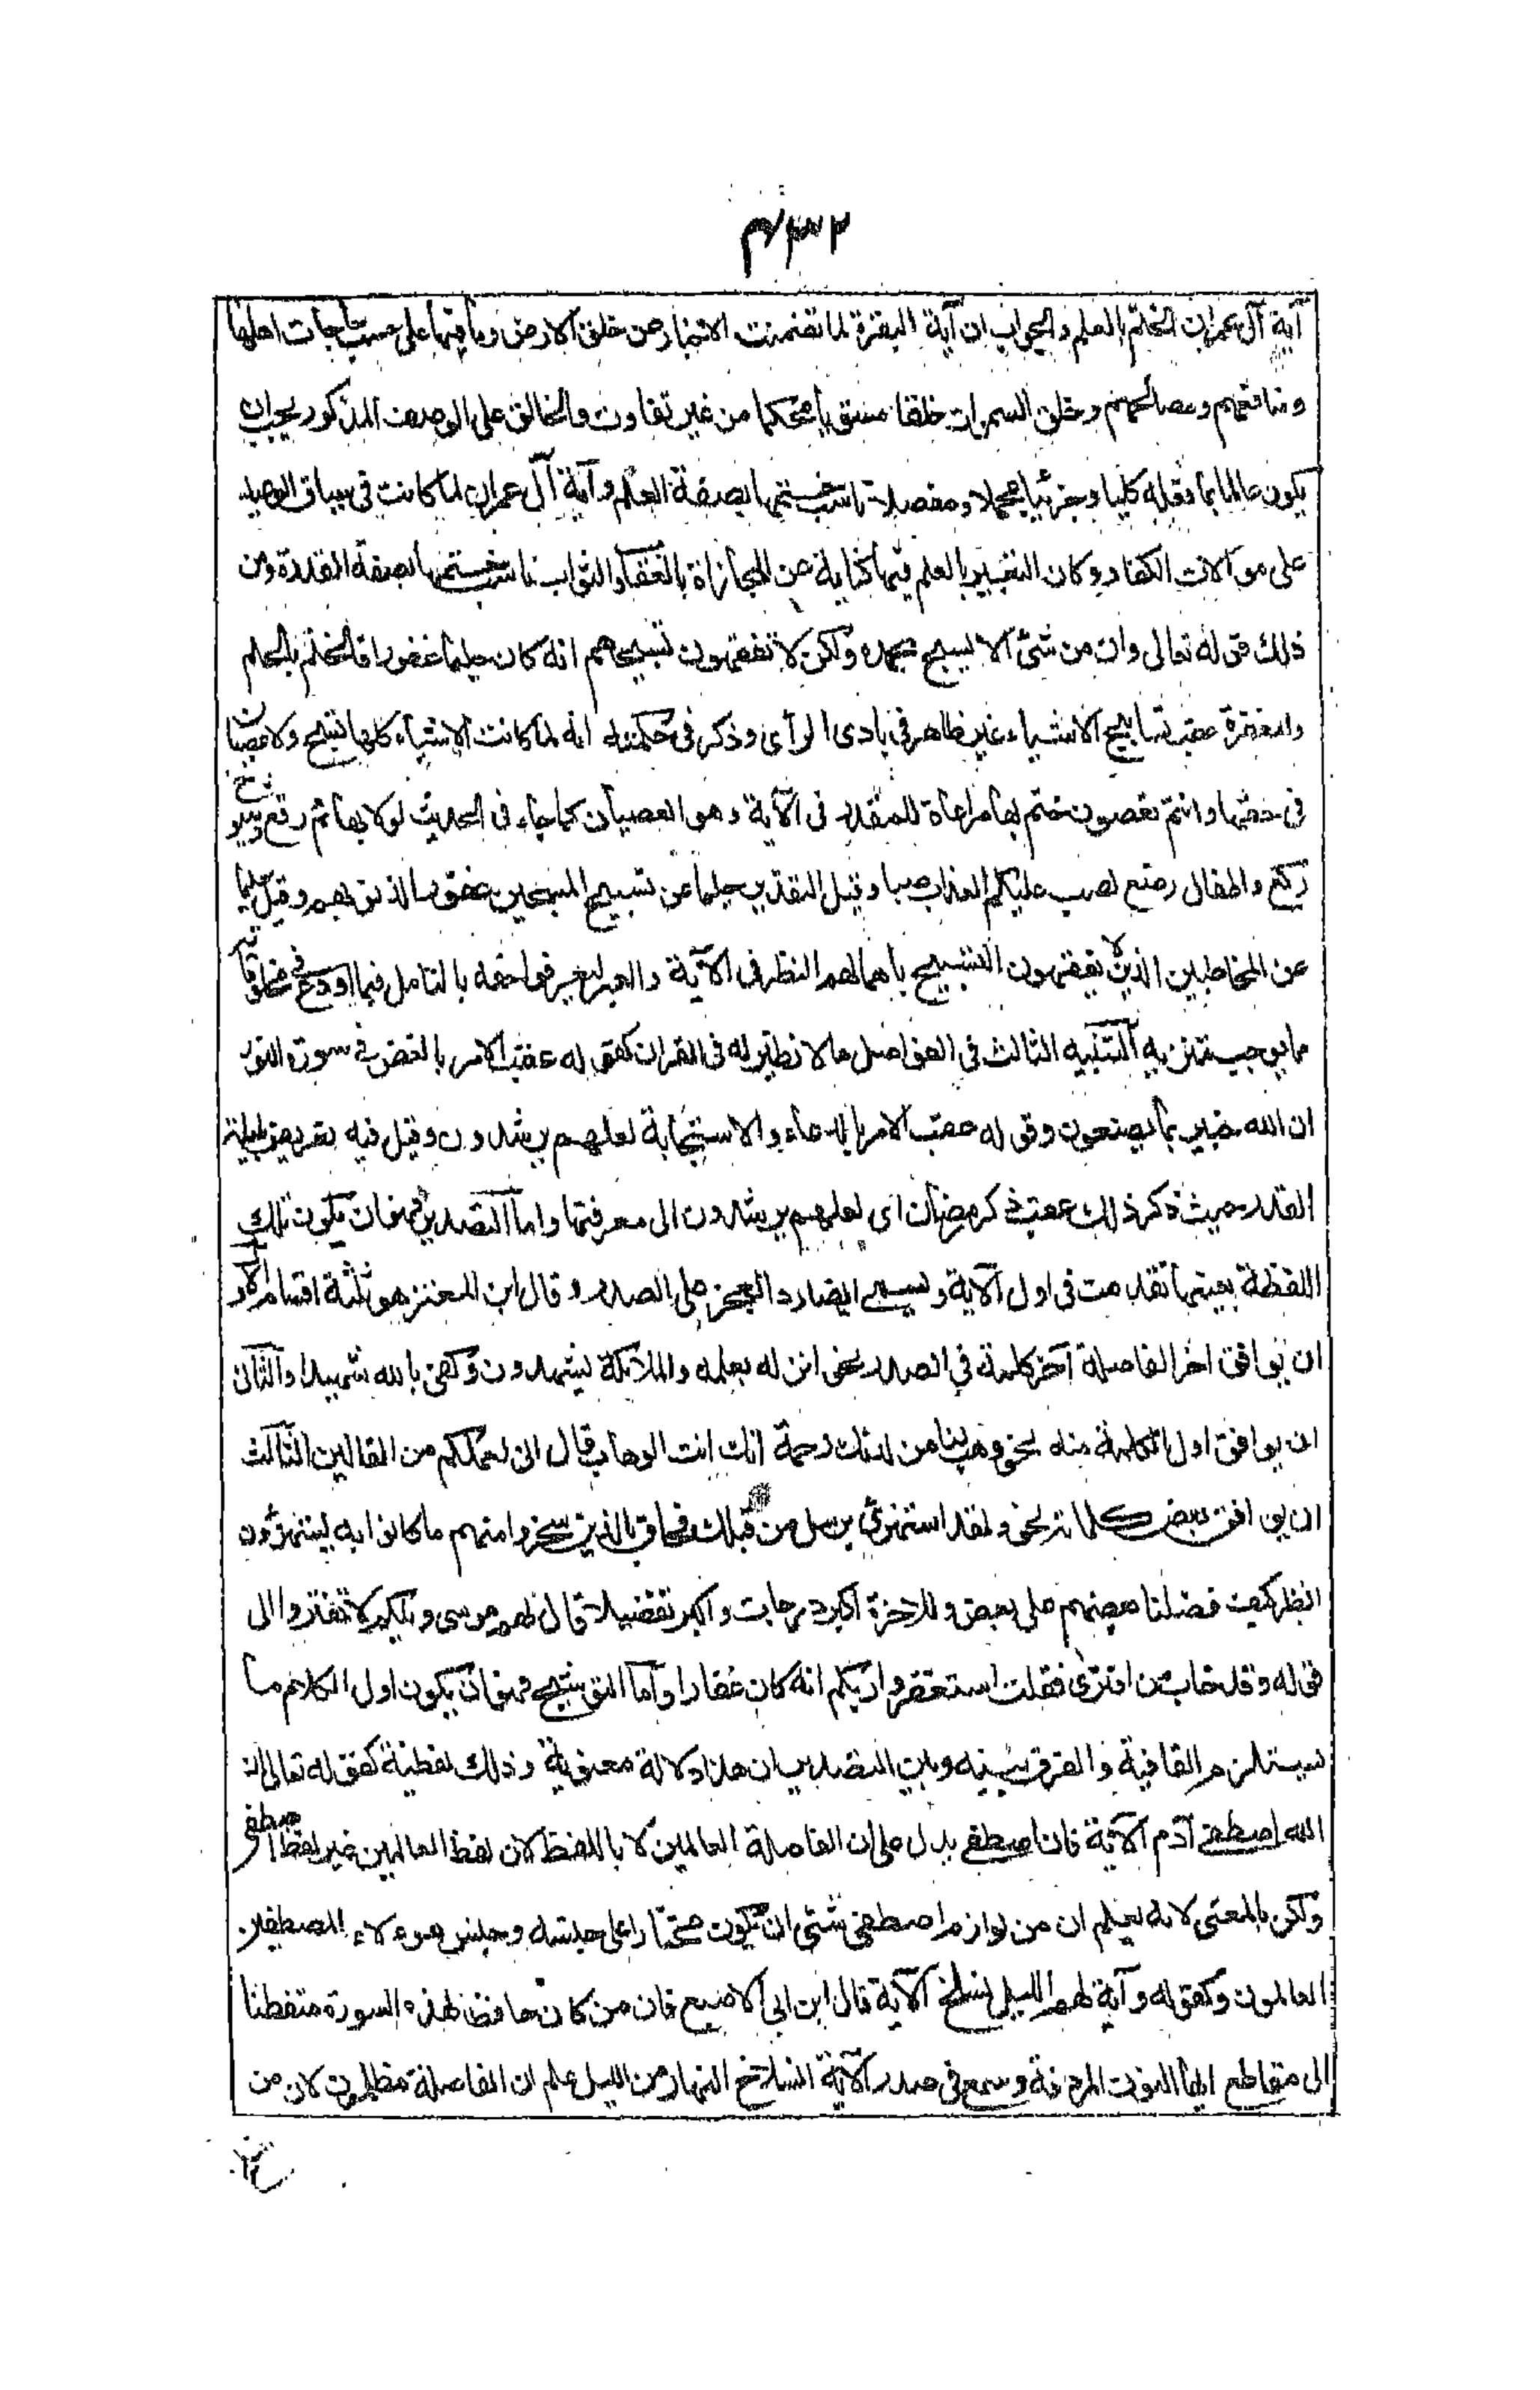 آية آل عمران الختم بالعلم والجواب ان آية البقرة لما تضمنت الاخبار عن خلق الارض وما فيها على حسب حاجات اهلها
ومنافعهم ومصالحهم وخلق السموات خلقا مستويا محكما من غير تفاوت والخالق على الوصف المذكور يجب ان
يكون عالما بما فعله كليا وجزئيا مجملا ومفصلا ناسب ختمها بصفة العلم وآية آل عمران لما كانت في سياق الوعيد
على موالات الكفار وكان التعبير بالعلم فيها كناية عن المجازاة بالعقاب والثواب ناسب ختمها بصفة القدرة ومن
ذلك قوله تعالى وان من شئ الا يسبح بحمده ولكن لا تفقهون تسبيحهم انه كان حليما غفورا فالختم بالحلم
والمغفرة عقب تسابيح الاشياء غير ظاهر في بادى الرأى وذكر في حكمته انه لما كانت الاشياء كلها تسبح ولا عصيان
في حقها وانتم تعصون ختم بها مراعاة للمقدر في الآية وهو العصيان كما جاء في الحديث لولا بهائم رتع وشيوخ
ركع واطفال رضع لصب عليكم العذاب صبا وقيل التقدير حليما عن تسبيح المسبحين غفورا لذنوبهم وقيل حليما
عن المخاطبين الذين لا يفقهون التسبيح باهمالهم النظر في الآية والعبر ليعرفوا حقه بالتامل فيما اودع في مخلوقاته
مما يوجب تنزيهه التنبيه الثالث في الفواصل ما لا نظير له في القران كقوله عقب الامر بالغض في سورة النور
ان الله خبير بما يصنعون وقوله عقب الامر بالدعاء والاستجابة لعلهم يرشدون وقيل فيه تعريض بليلة
القدر حيث ذكر ذلك عقب ذكر رمضان اى لعلهم يرشدون الى معرفتها واما التصدير فهو ان يكون تلك
اللفظة بعينها تقدمت في اول الآية ويسمى ايضا رد العجز على الصدر وقال ابن المعتز هو ثلثة اقسام الاول
ان يوافق اخر الفاصلة آخر كلمة في الصدر نحو انزله بعلمه والملائكة يشهدون وكفى بالله شهيدا والثانى
ان يوافق اول كلمة منه نحو وهب لنا من لدنك رحمة انك انت الوهاب قال انى لعملكم من القالين الثالث
ان يوافق بعض كلماته نحو ولقد استهزئ برسل من قبلك فحاق بالذين سخروا منهم ما كانوا به يستهزؤن
انظر كيف فضلنا بعضهم على بعض وللاخرة اكبر درجات واكبر تفضيلا قال لهم موسى ويلكم لا تفتروا الى
قوله وقد خاب من افترى فقلت استغفروا ربكم انه كان غفارا واما التوشيح فهو ان يكون اول الكلام ما
يستلزم القافية والفرق بينه وبين التصدير ان هذا دلالة معنوية وذلك لفظية كقوله تعالى ان
الله اصطفى آدم الآية فان اصطفى يدل على ان الفاصلة العالمين لا باللفظ لان لفظ العالمين غير لفظ اصطفى
ولكن بالمعنى لانه يعلم ان من لوازم اصطفى شئ ان يكون مختارا على جنسه وجنس هؤلاء المصطفين
العالمون وكقوله وآية لهم الليل نسلخ الآية قال ابن ابى الاصبع فان من كان حافظا لهذه السورة متفطنا
الى مقاطع ايها النون المردفة وسمع في صدر الآية انسلاخ النهار من الليل علم ان الفاصلة مظلمون لان من